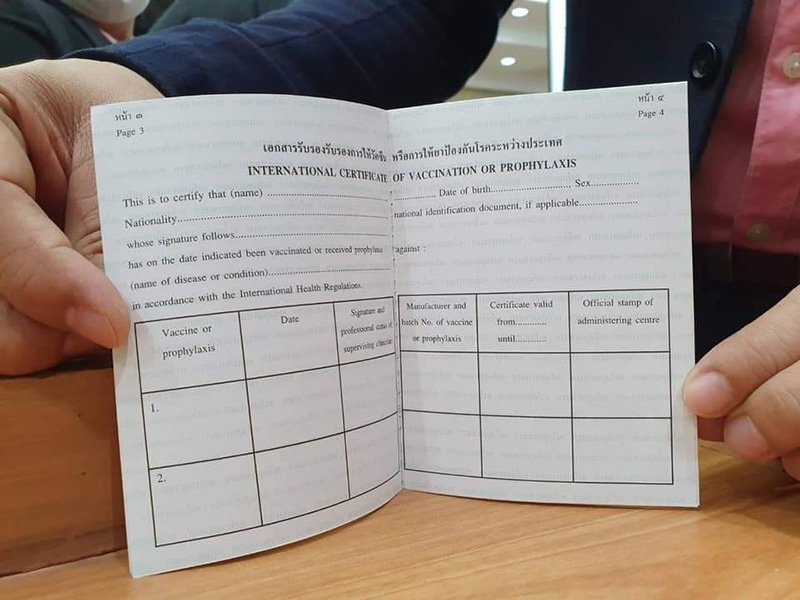 หน้า ๓
Page 3
หน้า ๔
Page 4
เอกสารรับรองรับรองการให้วัคซีน หรือการให้ยาป้องกันโรคระหว่างประเทศ
INTERNATIONAL CERTIFICATE OF VACCINATION OR PROPHYLAXIS
This is to certify that (name) ................................., Date of birth........................, Sex...............
Nationality............................................................ national identification document, if applicable...................
whose signature follows............................................
has on the date indicated been vaccinated or received prophylaxis against :
(name of disease or condition)..................................
in accordance with the International Health Regulations.
Vaccine or
prophylaxis
Date
Signature and
professional status of
supervising clinician
Manufacturer and
batch No. of vaccine
or prophylaxis
Certificate valid
from............
until............
Official stamp of
administering centre
1.
2.